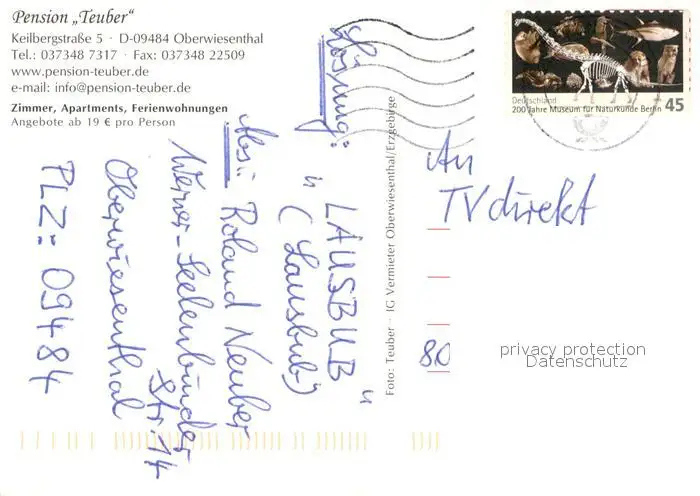 Pension „Teuber"
Keilbergstraße 5 · D-09484 Oberwiesenthal
Tel.: 037348 7317 · Fax: 037348 22509
www.pension-teuber.de
e-mail: info@pension-teuber.de
Zimmer, Apartments, Ferienwohnungen
Angebote ab 19 € pro Person
Lösung:
"LAUSBUB"
(Lausbub)
Abs.: Roland Neuber
Werner-Seelenbinder
Str. 14
Oberwiesenthal
PLZ: 09484
Foto: Teuber · IG Vermieter Oberwiesenthal/Erzgebirge
Deutschland
200 Jahre Museum für Naturkunde Berlin
45
An
TV direkt
80
privacy protection
Datenschutz